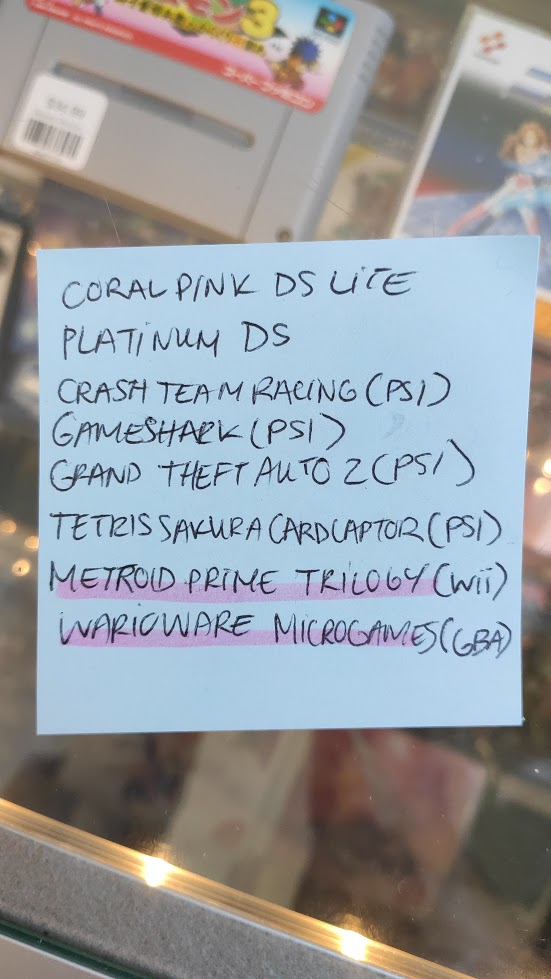 スーパーファミコン
CORAL PINK DS LITE
PLATINUM DS
CRASH TEAM RACING (PS1)
GAMESHARK (PS1)
GRAND THEFT AUTO 2 (PS1)
TETRIS SAKURA CARDCAPTOR (PS1)
METROID PRIME TRILOGY (Wii)
WARIOWARE MICROGAMES (GBA)